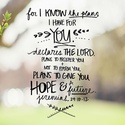 for I KNOW the plans
I HAVE FOR
YOU,
declares THE LORD.
PLANS TO PROSPER YOU
+ NOT TO HARM YOU,
PLANS TO GIVE YOU
HOPE & future
jeremiah